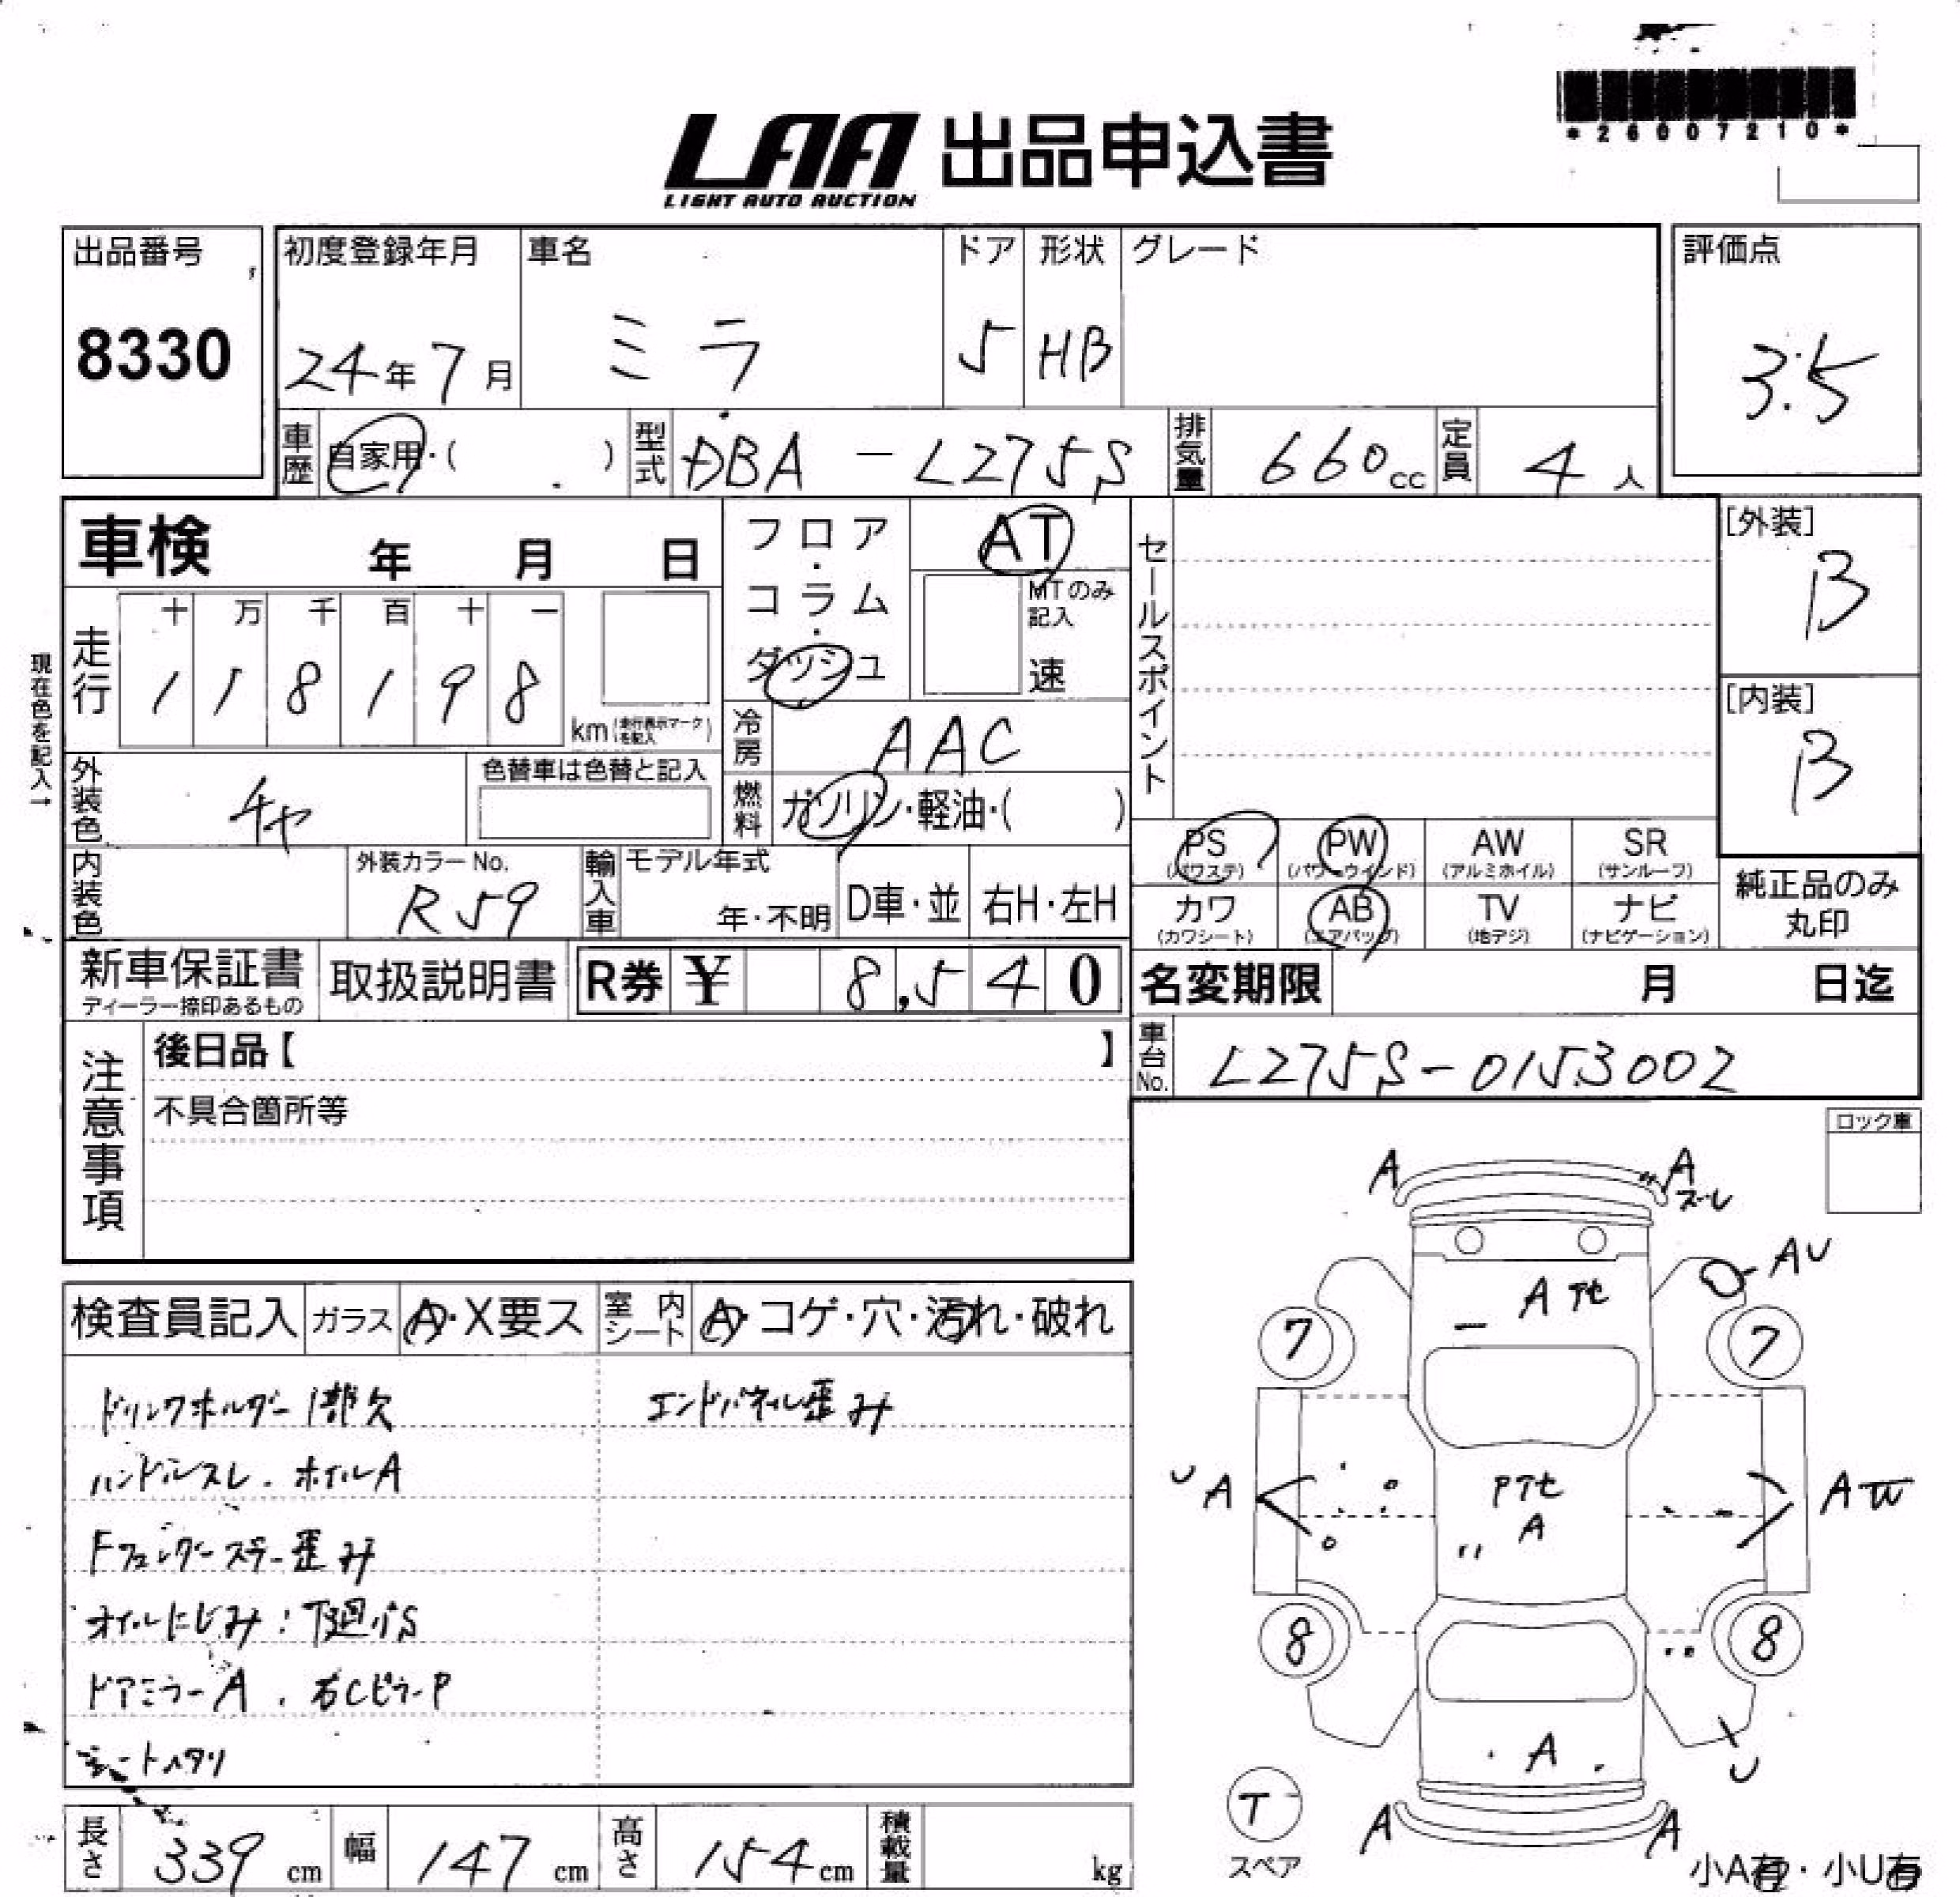 *26007210*
LAA 出品申込書
LIGHT AUTO AUCTION
出品番号
8330
初度登録年月
24年7月
車名
ミラ
ドア
5
形状
HB
グレード
評価点
3.5
車歴 自家用・( )
型式 DBA-L275S
排気量 660cc
定員 4人
車検 年 月 日
フロア・コラム・ダッシュ
AT
MTのみ記入
速
セールスポイント
[外装]
B
[内装]
B
現在色を記入→
走行
十 万 千 百 十 一
1 1 8 1 9 8
km(走行表示マークを記入)
冷房 AAC
外装色 チャ
色替車は色替と記入
燃料 ガソリン・軽油・( )
PS (パワステ)
PW (パワーウインド)
AW (アルミホイル)
SR (サンルーフ)
カワ (カワシート)
AB (エアバッグ)
TV (地デジ)
ナビ (ナビゲーション)
純正品のみ
丸印
内装色
外装カラーNo.
R59
輸入車
モデル年式
年・不明
D車・並
右H・左H
新車保証書
ディーラー捺印あるもの
取扱説明書
R券 ¥ 8,540
名変期限 月 日迄
注意事項
後日品【 】
不具合箇所等
車台No. L275S-0153002
ロック車
検査員記入
ガラス A・X要ス
室内シート A・コゲ・穴・汚れ・破れ
ドリンクホルダー1部欠
エンドパネル歪み
ハンドルスレ.ホイルA
Fフェンダーステー歪み
オイルにじみ:下廻小S
ドアミラーA.右CピラーP
シートヘタリ
A
A
ズレ
AU
Aアセ
7
7
U
A
Pアセ
A
AW
8
8
A
U
A
A
T
スペア
小A有・小U有
長さ 339cm
幅 147cm
高さ 154cm
積載量 kg